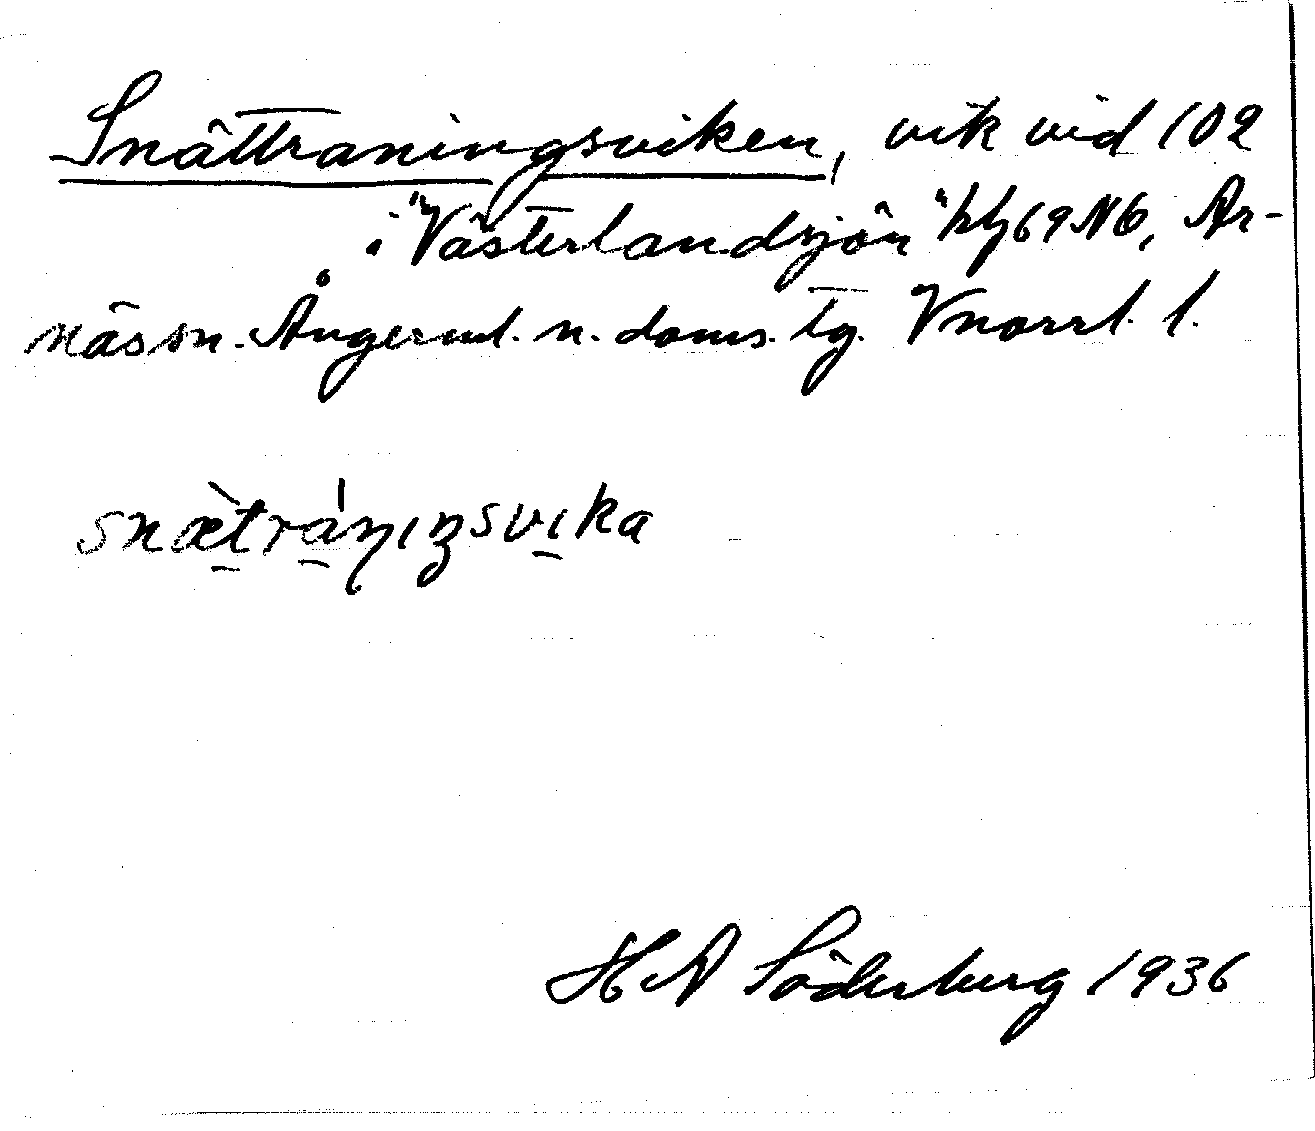 Snättraningsviken, vik vid 102
i "Västerlandsjön" kbl 69 NO, Ar-
näs sn. Ångerml. n. doms. tg. Vnorrl. l.
snætranıŋsvıka
H A Söderberg 1936